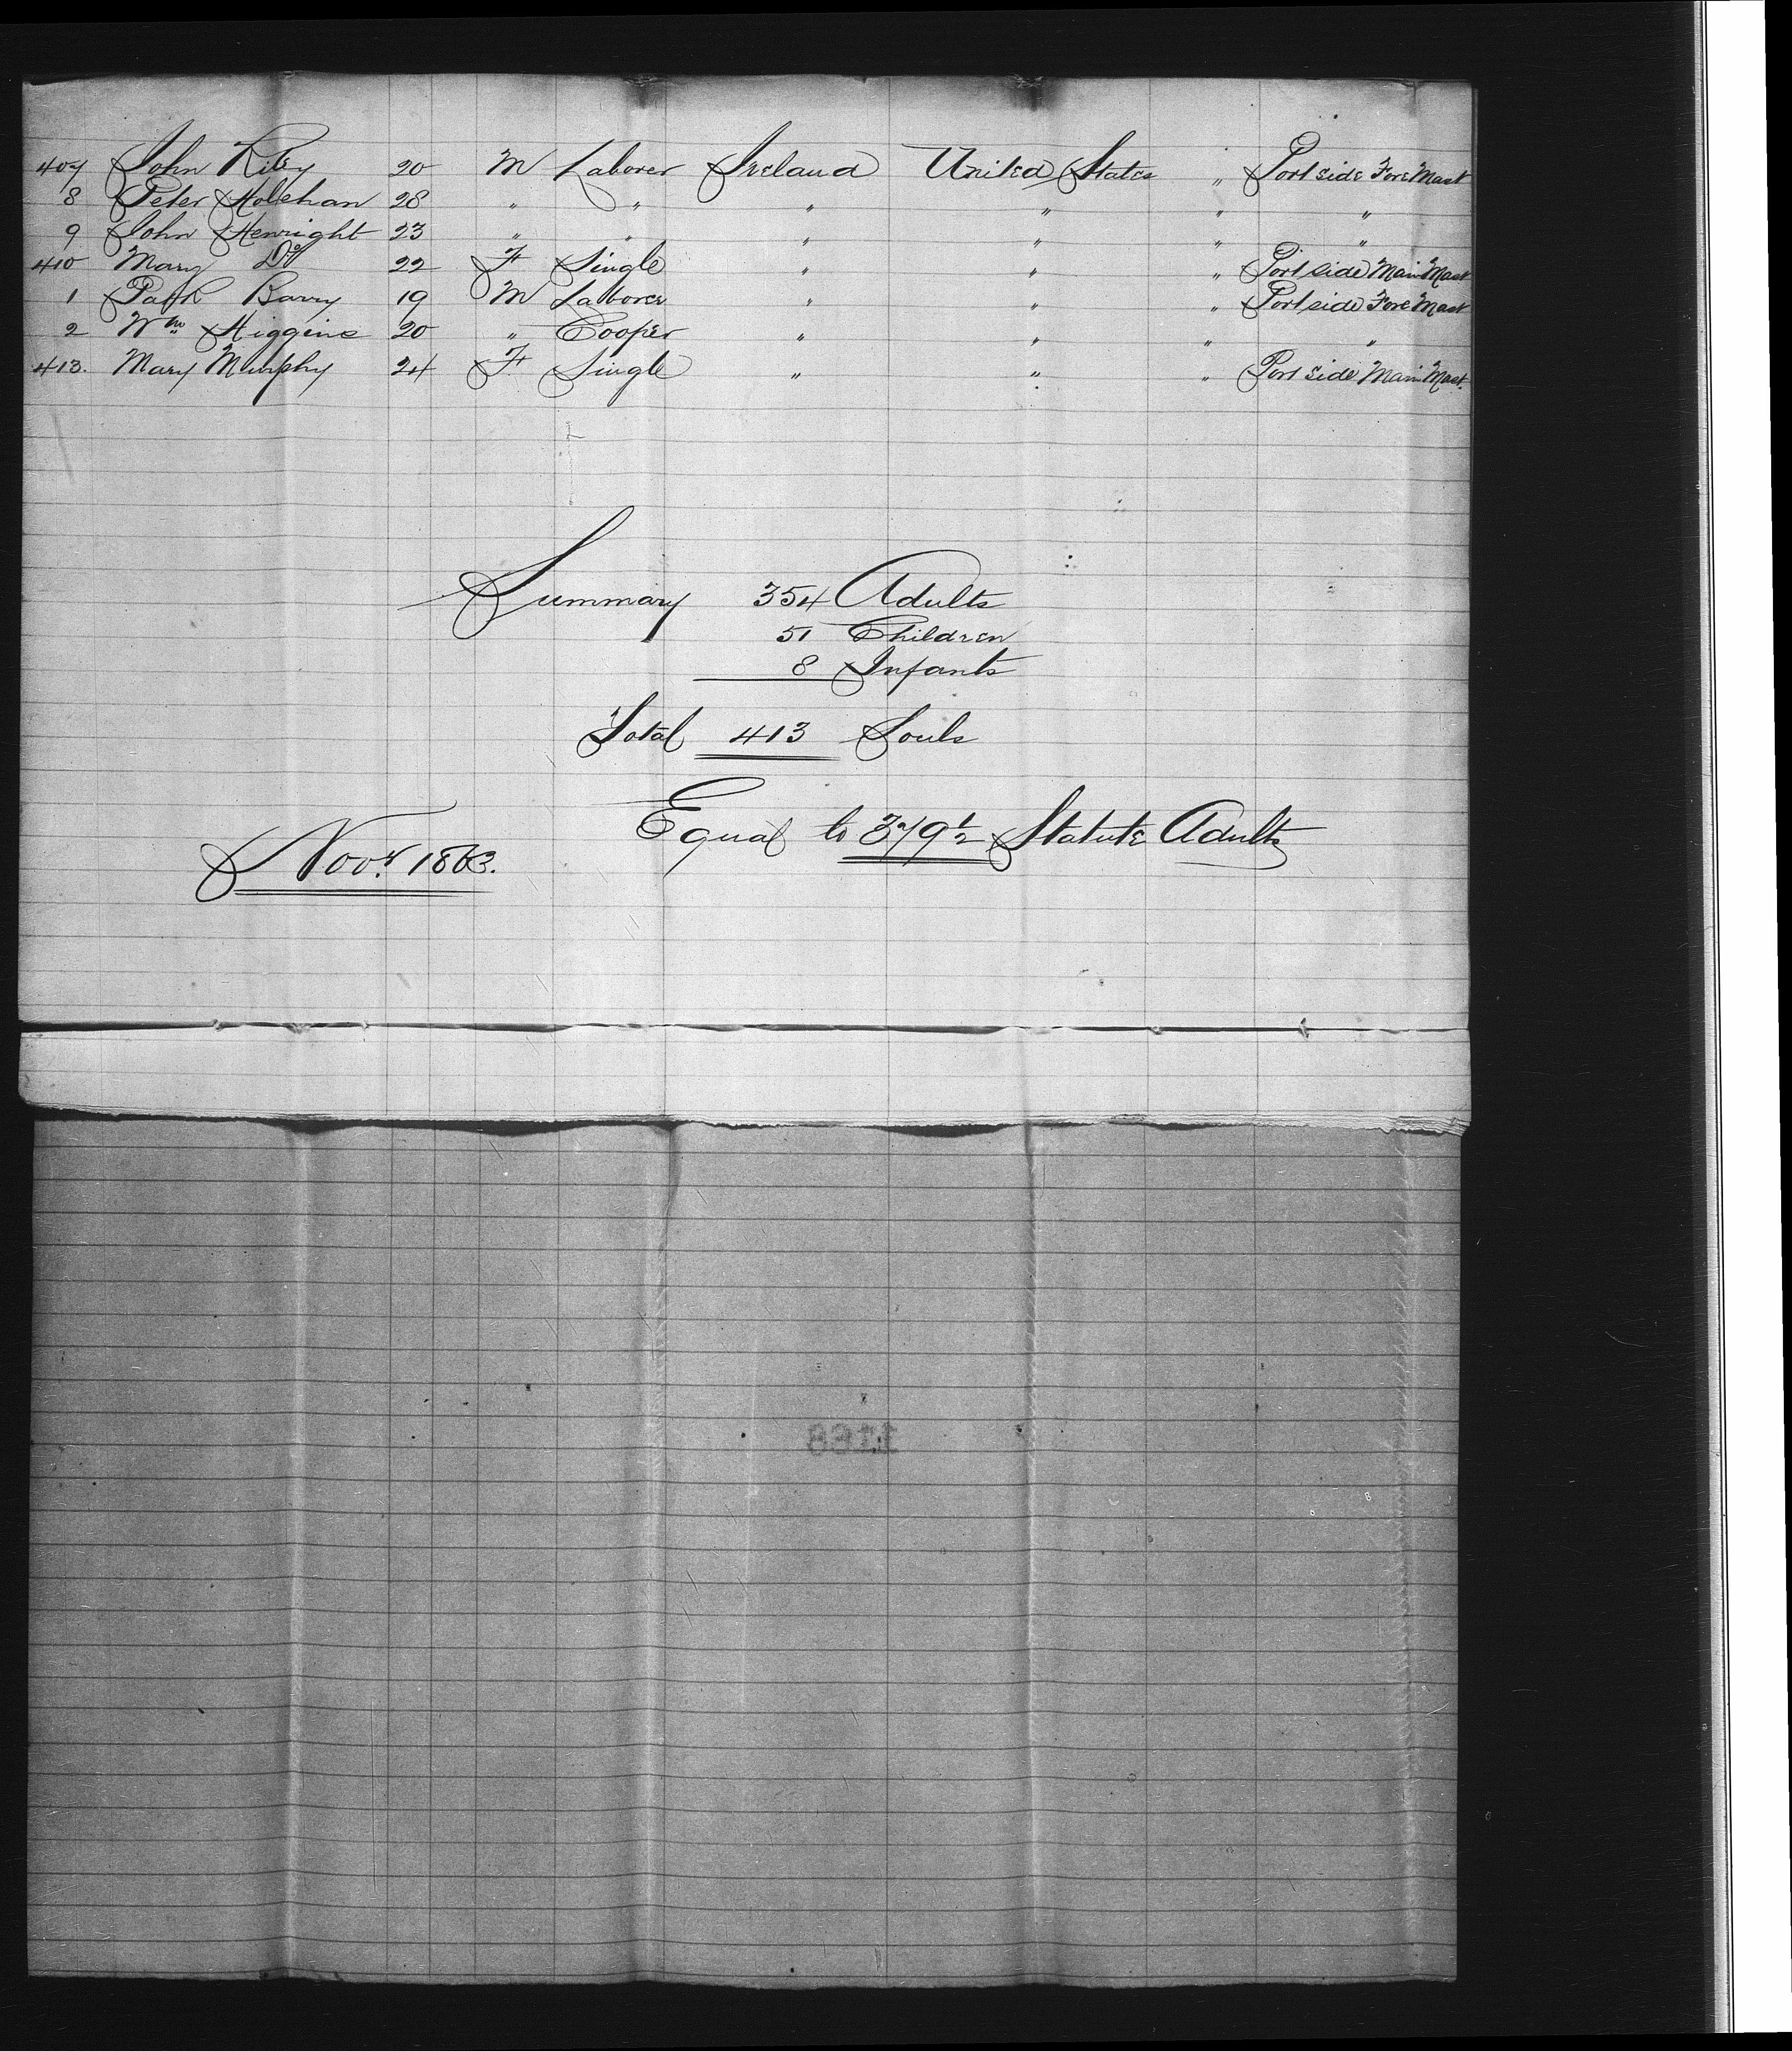 407 John Riley 20 M Laborer Ireland United States " Port side Fore Mast
8 Peter Holehan 28 " " " " " "
9 John Henright 23 " " " " " "
410 Mary Do 22 F Single " " " Port side Main Mast
1 Patk Barry 19 M Laborer " " " Port side Fore Mast
2 Wm Higgins 20 " Cooper " " " "
413. Mary Murphy 24 F Single " " " Port side Main Mast.
Summary 354 Adults
51 Children
8 Infants
Total 413 Souls
Equal to 379 1/2 Statute Adults
Novr. 1863.
1168